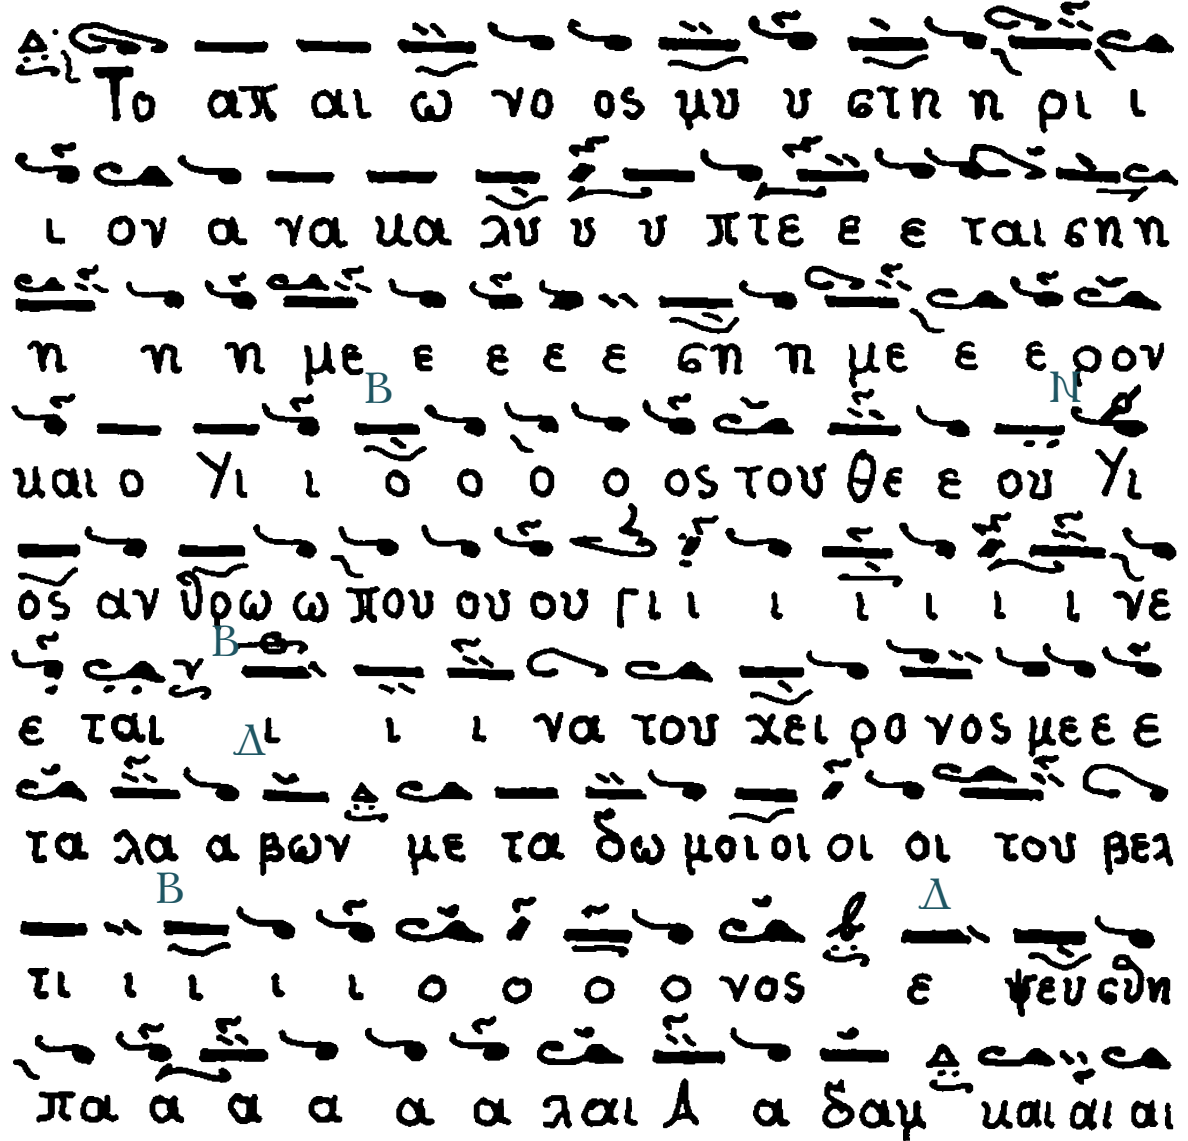 Το απ αι ω νο ος μυ υ στη η ρι ι
ι ον α να κα λυ υ υ πτε ε ε ται ση η
η η η με ε ε ε ε ση η με ε ε ρον
Β Ν
και ο Υι ι ο ο ο ο ος του Θε ε ου Υι
ος αν θρω ω που ου ου γι ι ι ι ι ι ι νε
Β
ε ται ι ι ι να του χει ρο νος με ε ε
Δ
τα λα α βων με τα δω μοι οι οι οι του βελ
Β Δ
τι ι ι ι ι ο ο ο ο νος ε ψευ σθη
πα α α α α α λαι Α α δαμ και αι αι